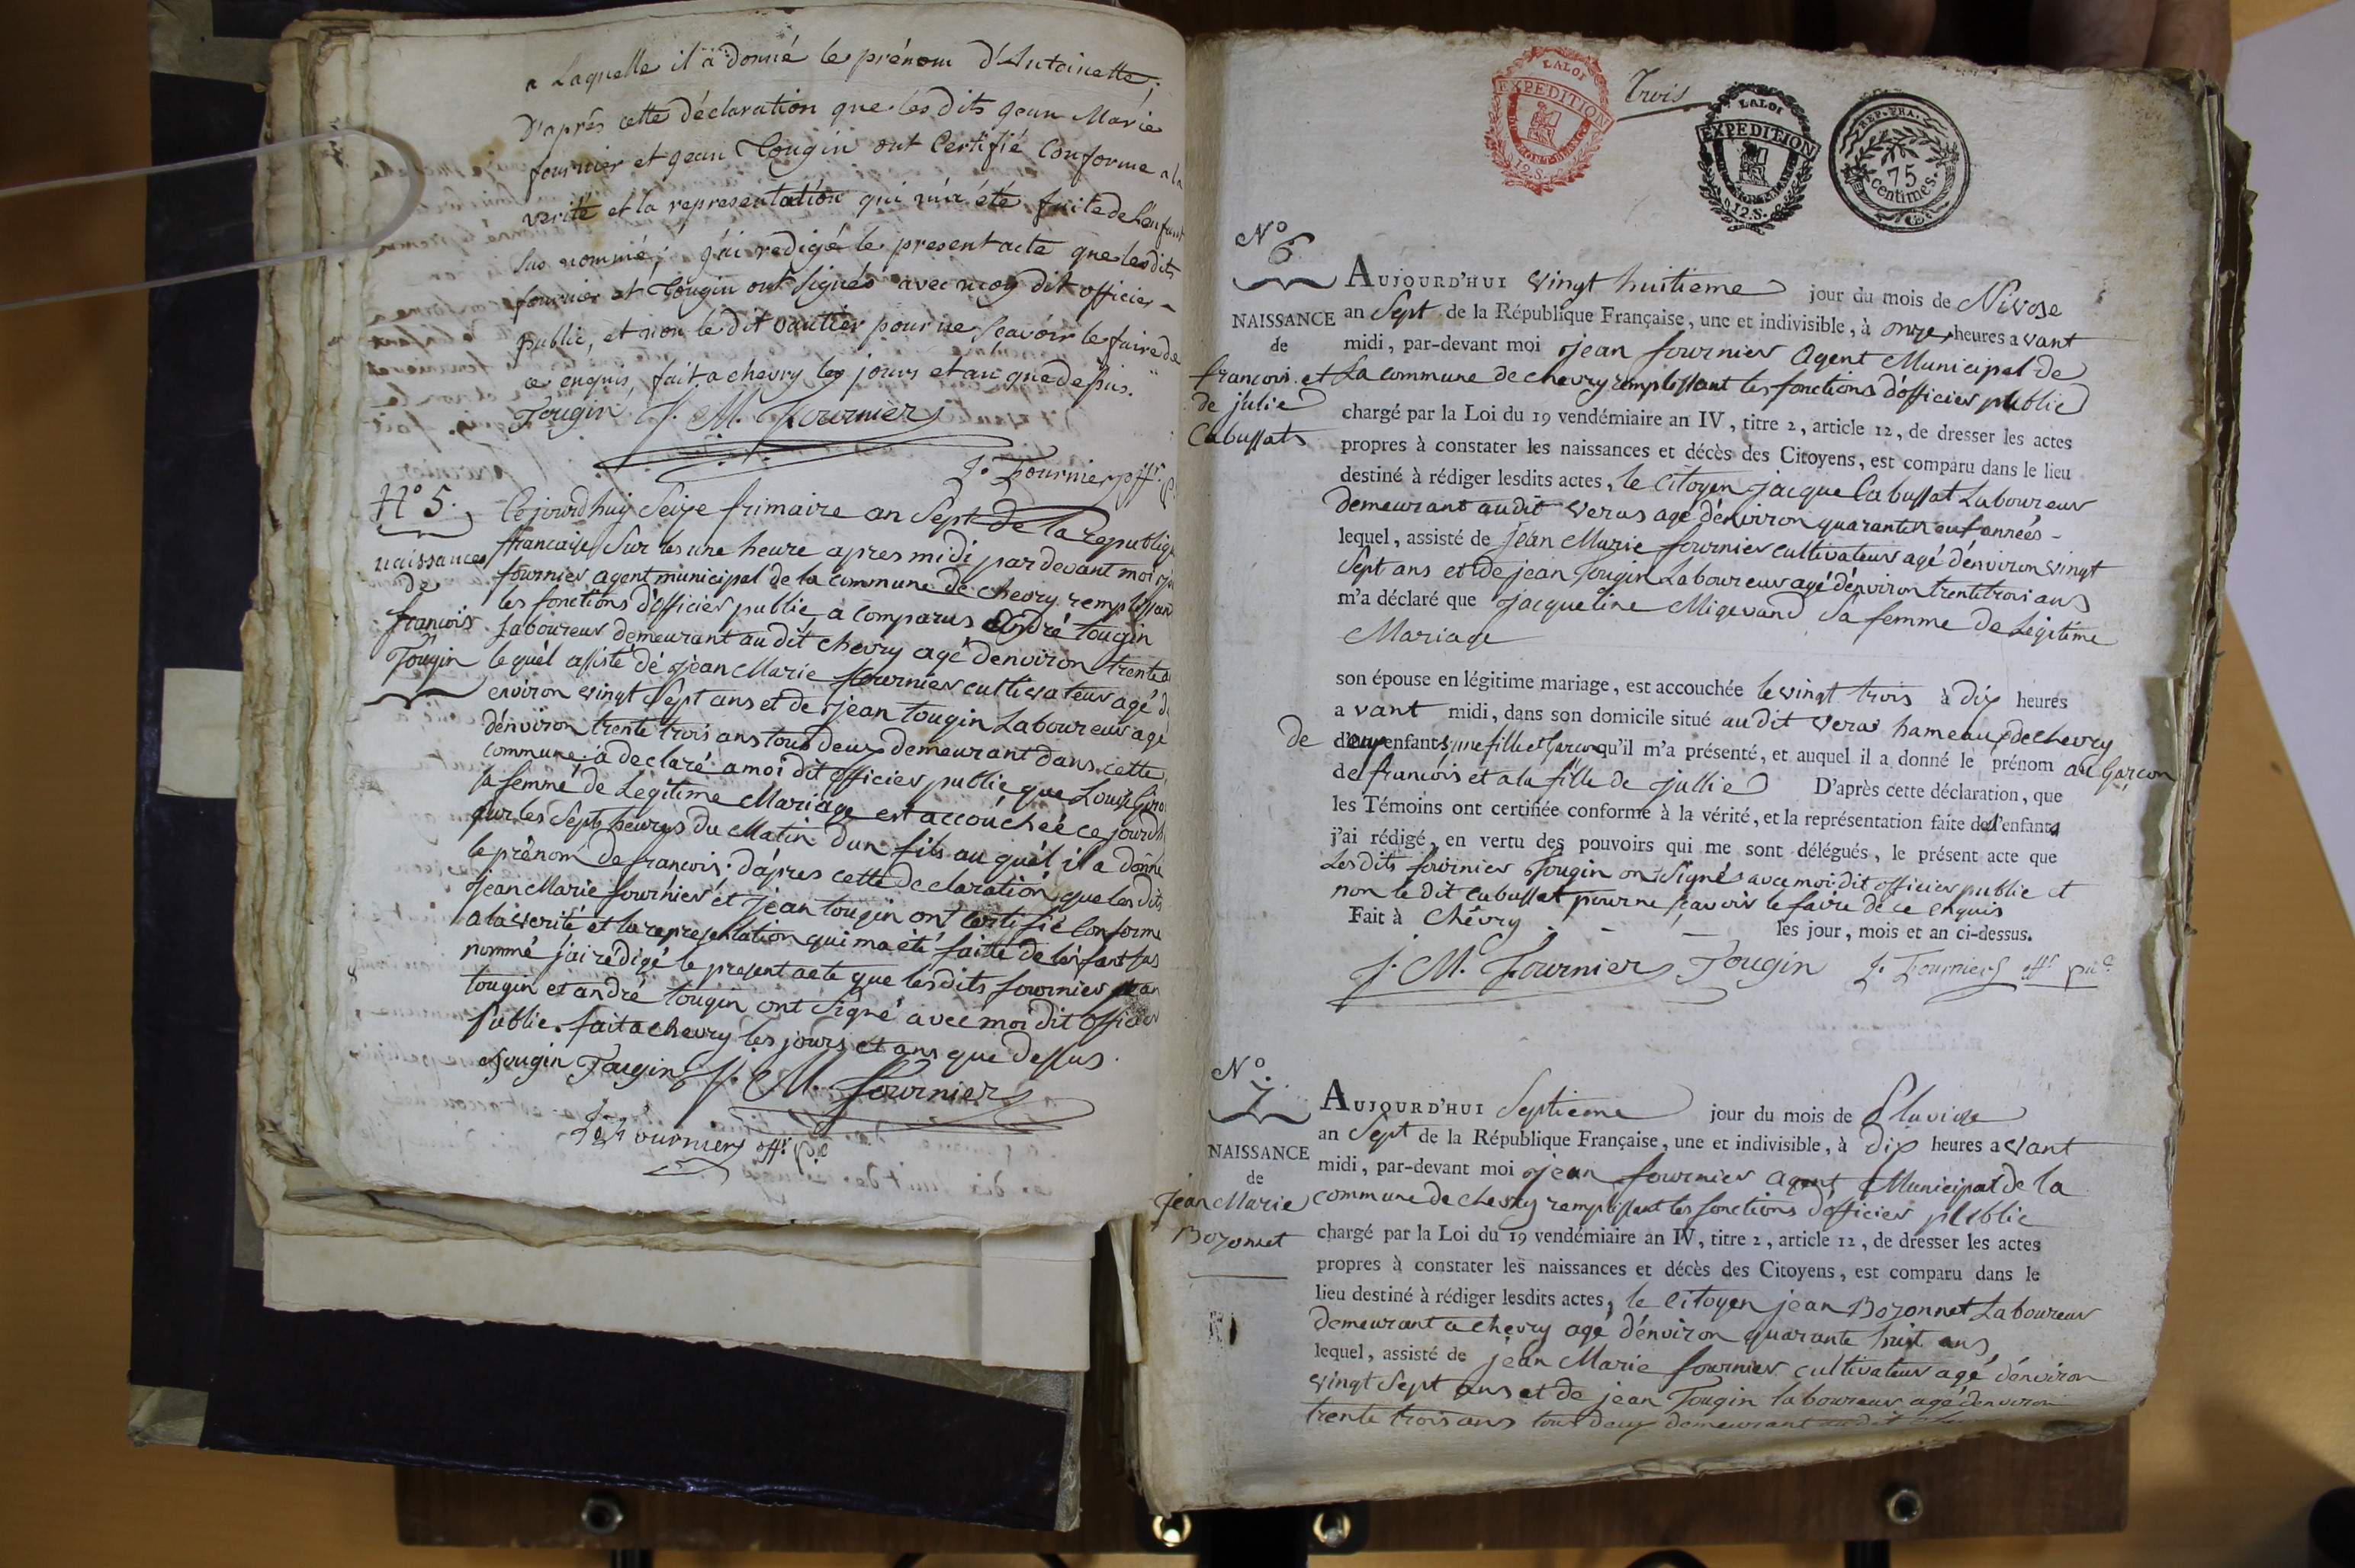 a Laquelle il a donné le prénom d'Antoinette;
D'après cette déclaration que les dits Jean Marie
fournier et Jean Tougin ont Certifié Conforme a la
verité et la representation qui m'a été faite de L'enfant
sus nommé; j'ai redigé le present acte que les dits
fournier et Tougin ont signés avec moy dit officier
public, et non le dit vautier pour ne scavoir le faire de
ce enquis, fait a chevry les jours et an que depus.
Tougin J. M. Fournier
J. Fournier off.
N° 5.
naissance
de
francois
Tougin
Cejourdhuy Seize frimaire an Sept de la republique
francaise Sur les une heure apres midi par devant moi
fournier agent municipal de la commune de chevry remplissant
les fonctions d'officier public, a comparus André tougin
Laboureur demeurant au dit chevry agé denviron trente
lequel assisté dé jean Marie fournier cultivateur agé d
environ vingt Sept ans et de jean tougin Laboureur agé
dénviron trente trois ans tous deux demeurant dans cette
commune. a declaré a moi dit officier public que Louise
sa femme de Legitime Mariage est accouchée ce jourdh
sur les Sept heures du Matin d'un fils au quel il a donné
le prénom de francois; d'apres cette declaration que les dits
jean Marie fournier et jean tougin ont certifié Conforme
a la verité et la representation qui ma été faitte de l'enfant sus
nommé j'ai rédigé le present acte que lesdits fournier jean
tougin et andré tougin ont Signé avec moi dit officier
Public. fait a chevry les jours et ans que dessus.
Tougin Tougin J. M. fournier
J. Fournier off. p.
Trois
LA LOI
EXPEDITION
DU MONT-BLANC
12.S.
LA LOI
EXPEDITION
12.S.
REP. FRA.
75
centimes.
N°
6
NAISSANCE
de
francois et
de julie
Cabussats
AUJOURD'HUI vingt huitieme jour du mois de Nivose
an Sept de la République Française, une et indivisible, à onze heures avant
midi, par-devant moi jean fournier Agent Municipal de
La commune de chevry remplissant les fonctions d'officier public
chargé par la Loi du 19 vendémiaire an IV, titre 2, article 12, de dresser les actes
propres à constater les naissances et décès des Citoyens, est comparu dans le lieu
destiné à rédiger lesdits actes, le Citoyen jacque Cabussat Laboureur
demeurant audit veras agé d'environ quarante neuf années
lequel, assisté de jean Marie fournier cultivateur agé d'environ vingt
Sept ans et de jean Tougin Laboureur agé d'environ trente trois ans
m'a déclaré que jacqueline Migevand Sa femme de Légitime
Mariage
son épouse en légitime mariage, est accouchée le vingt trois à dix heures
avant midi, dans son domicile situé au dit veras hameau de chevry
de deux enfants, une fille et garçon qu'il m'a présenté, et auquel il a donné le prénom au Garçon
de francois et a la fille de jullie D'après cette déclaration, que
les Témoins ont certifiée conforme à la vérité, et la représentation faite des enfants
j'ai rédigé, en vertu des pouvoirs qui me sont délégués, le présent acte que
Lesdits fournier Tougin ont Signés avec moi dit officier public et
non le dit cabussat pour ne scavoir le faire de ce enquis
Fait à Chevry les jour, mois et an ci-dessus.
J. M. Fournier Tougin J. Fournier off. p.
N°
7
NAISSANCE
de
Jean Marie
Bozonnet
AUJOURD'HUI Septieme jour du mois de Pluviose
an Sept de la République Française, une et indivisible, à dix heures avant
midi, par-devant moi jean fournier agent Municipal de la
commune de chevry remplissant les fonctions d'officier public
chargé par la Loi du 19 vendémiaire an IV, titre 2, article 12, de dresser les actes
propres à constater les naissances et décès des Citoyens, est comparu dans le
lieu destiné à rédiger lesdits actes, le Citoyen jean Bozonnet Laboureur
demeurant a chevry agé d'environ quarante huit ans,
lequel, assisté de jean Marie fournier cultivateur agé d'énviron
vingt Sept ans et de jean Tougin laboureur agé d'environ
trente trois ans tous deux demeurant au dit